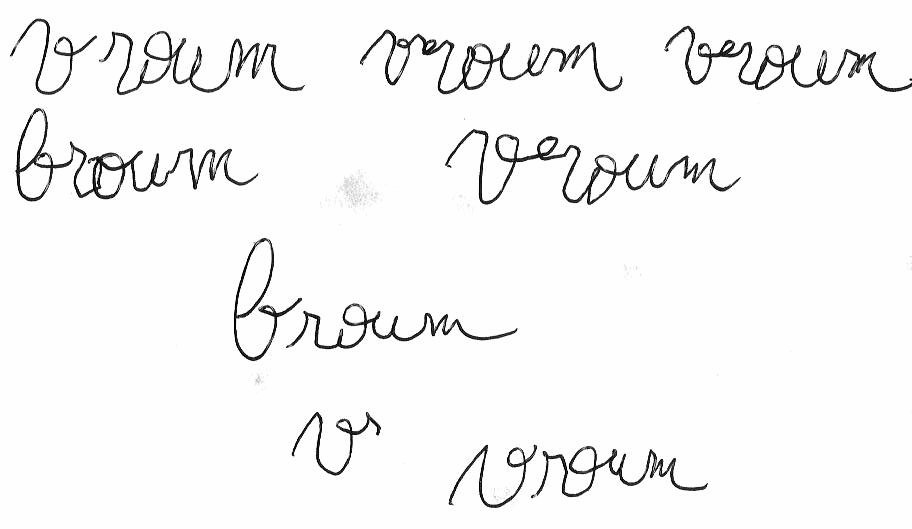 vroum veroum veroum
broum veroum
broum
v vroum